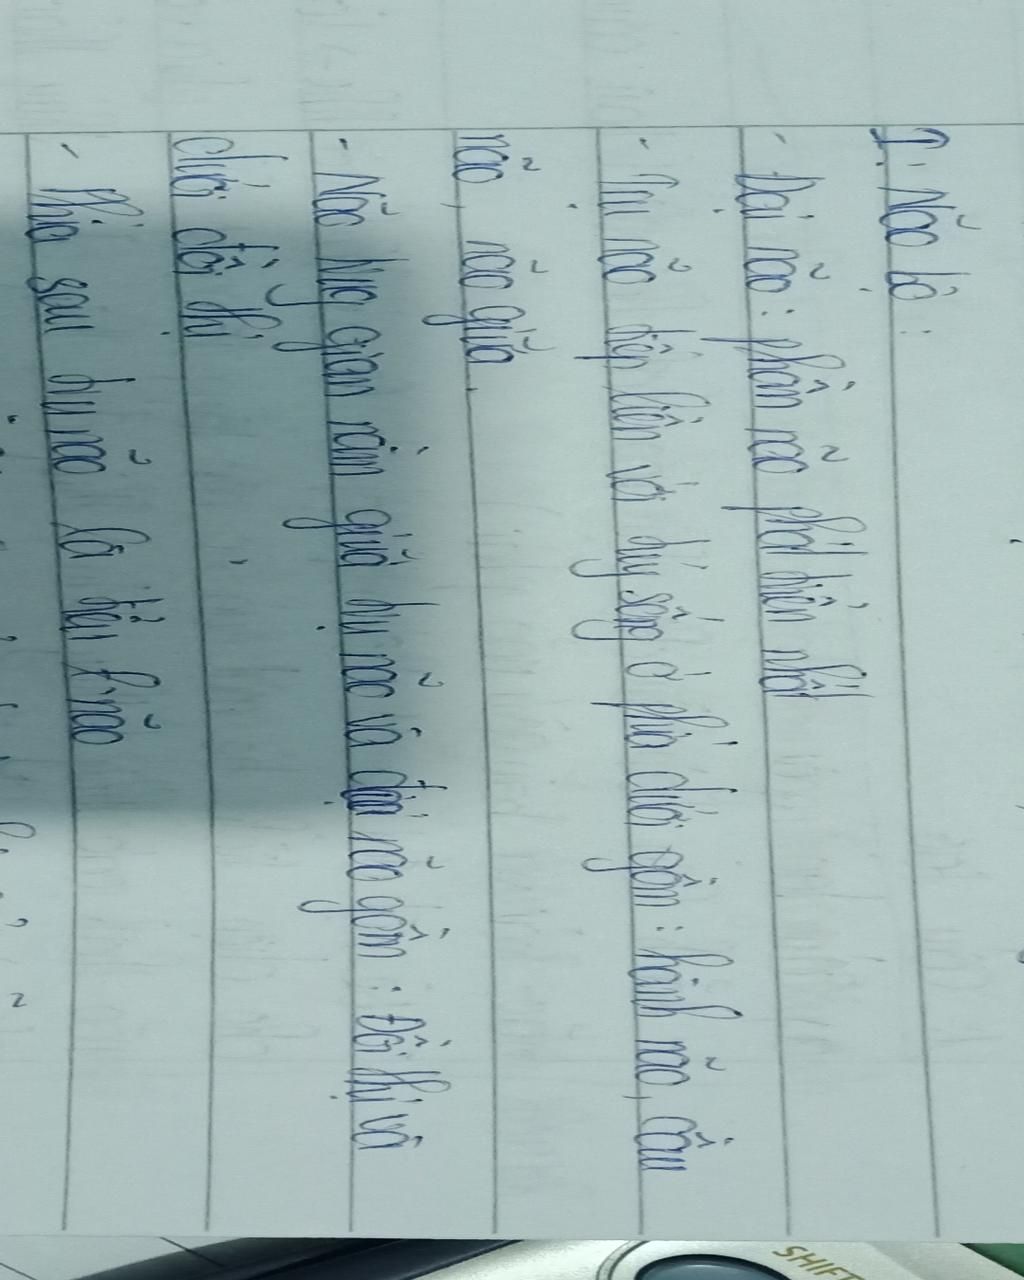 I. Não bộ:
- Đại não: phần não phát triển nhất
- Trụ não tiếp liền với tủy sống ở phía dưới gồm: hành não, cầu
não, não giữa.
- Não trung gian nằm giữa trụ não và đại não gồm: Đồi thị và
dưới đồi thị
- Phía sau trụ não là tiểu não
SHIFT